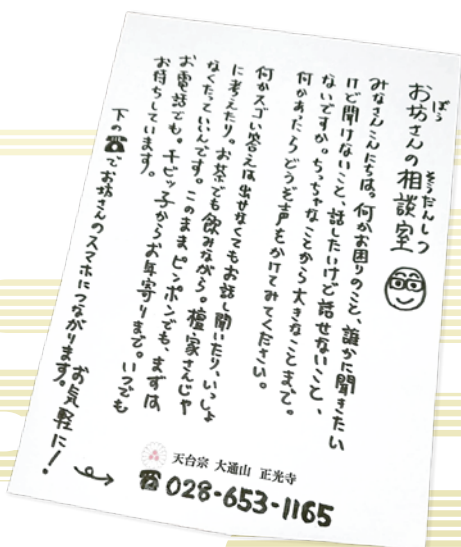 お坊さんの相談室
ぼう
そうだんしつ
みなさんこんにちは。何かお困りのこと、誰かに聞きたい
けど聞けないこと、話したいけど話せないこと、
ないですか。ちっちゃなことから大きなことまで。
何かあったらどうぞ声をかけてみてください。
何かスゴい答えは出せなくてもお話し聞いたり、いっしょ
に考えたり。お茶でも飲みながら。檀家さんじゃ
なくたっていいんです。このまま、ピンポンでも、まずは
お電話でも。チビッ子からお年寄りまで。いつでも
お待ちしています。
下の☎でお坊さんのスマホにつながります。お気軽に!
天台宗 大通山 正光寺
☎028-653-1165